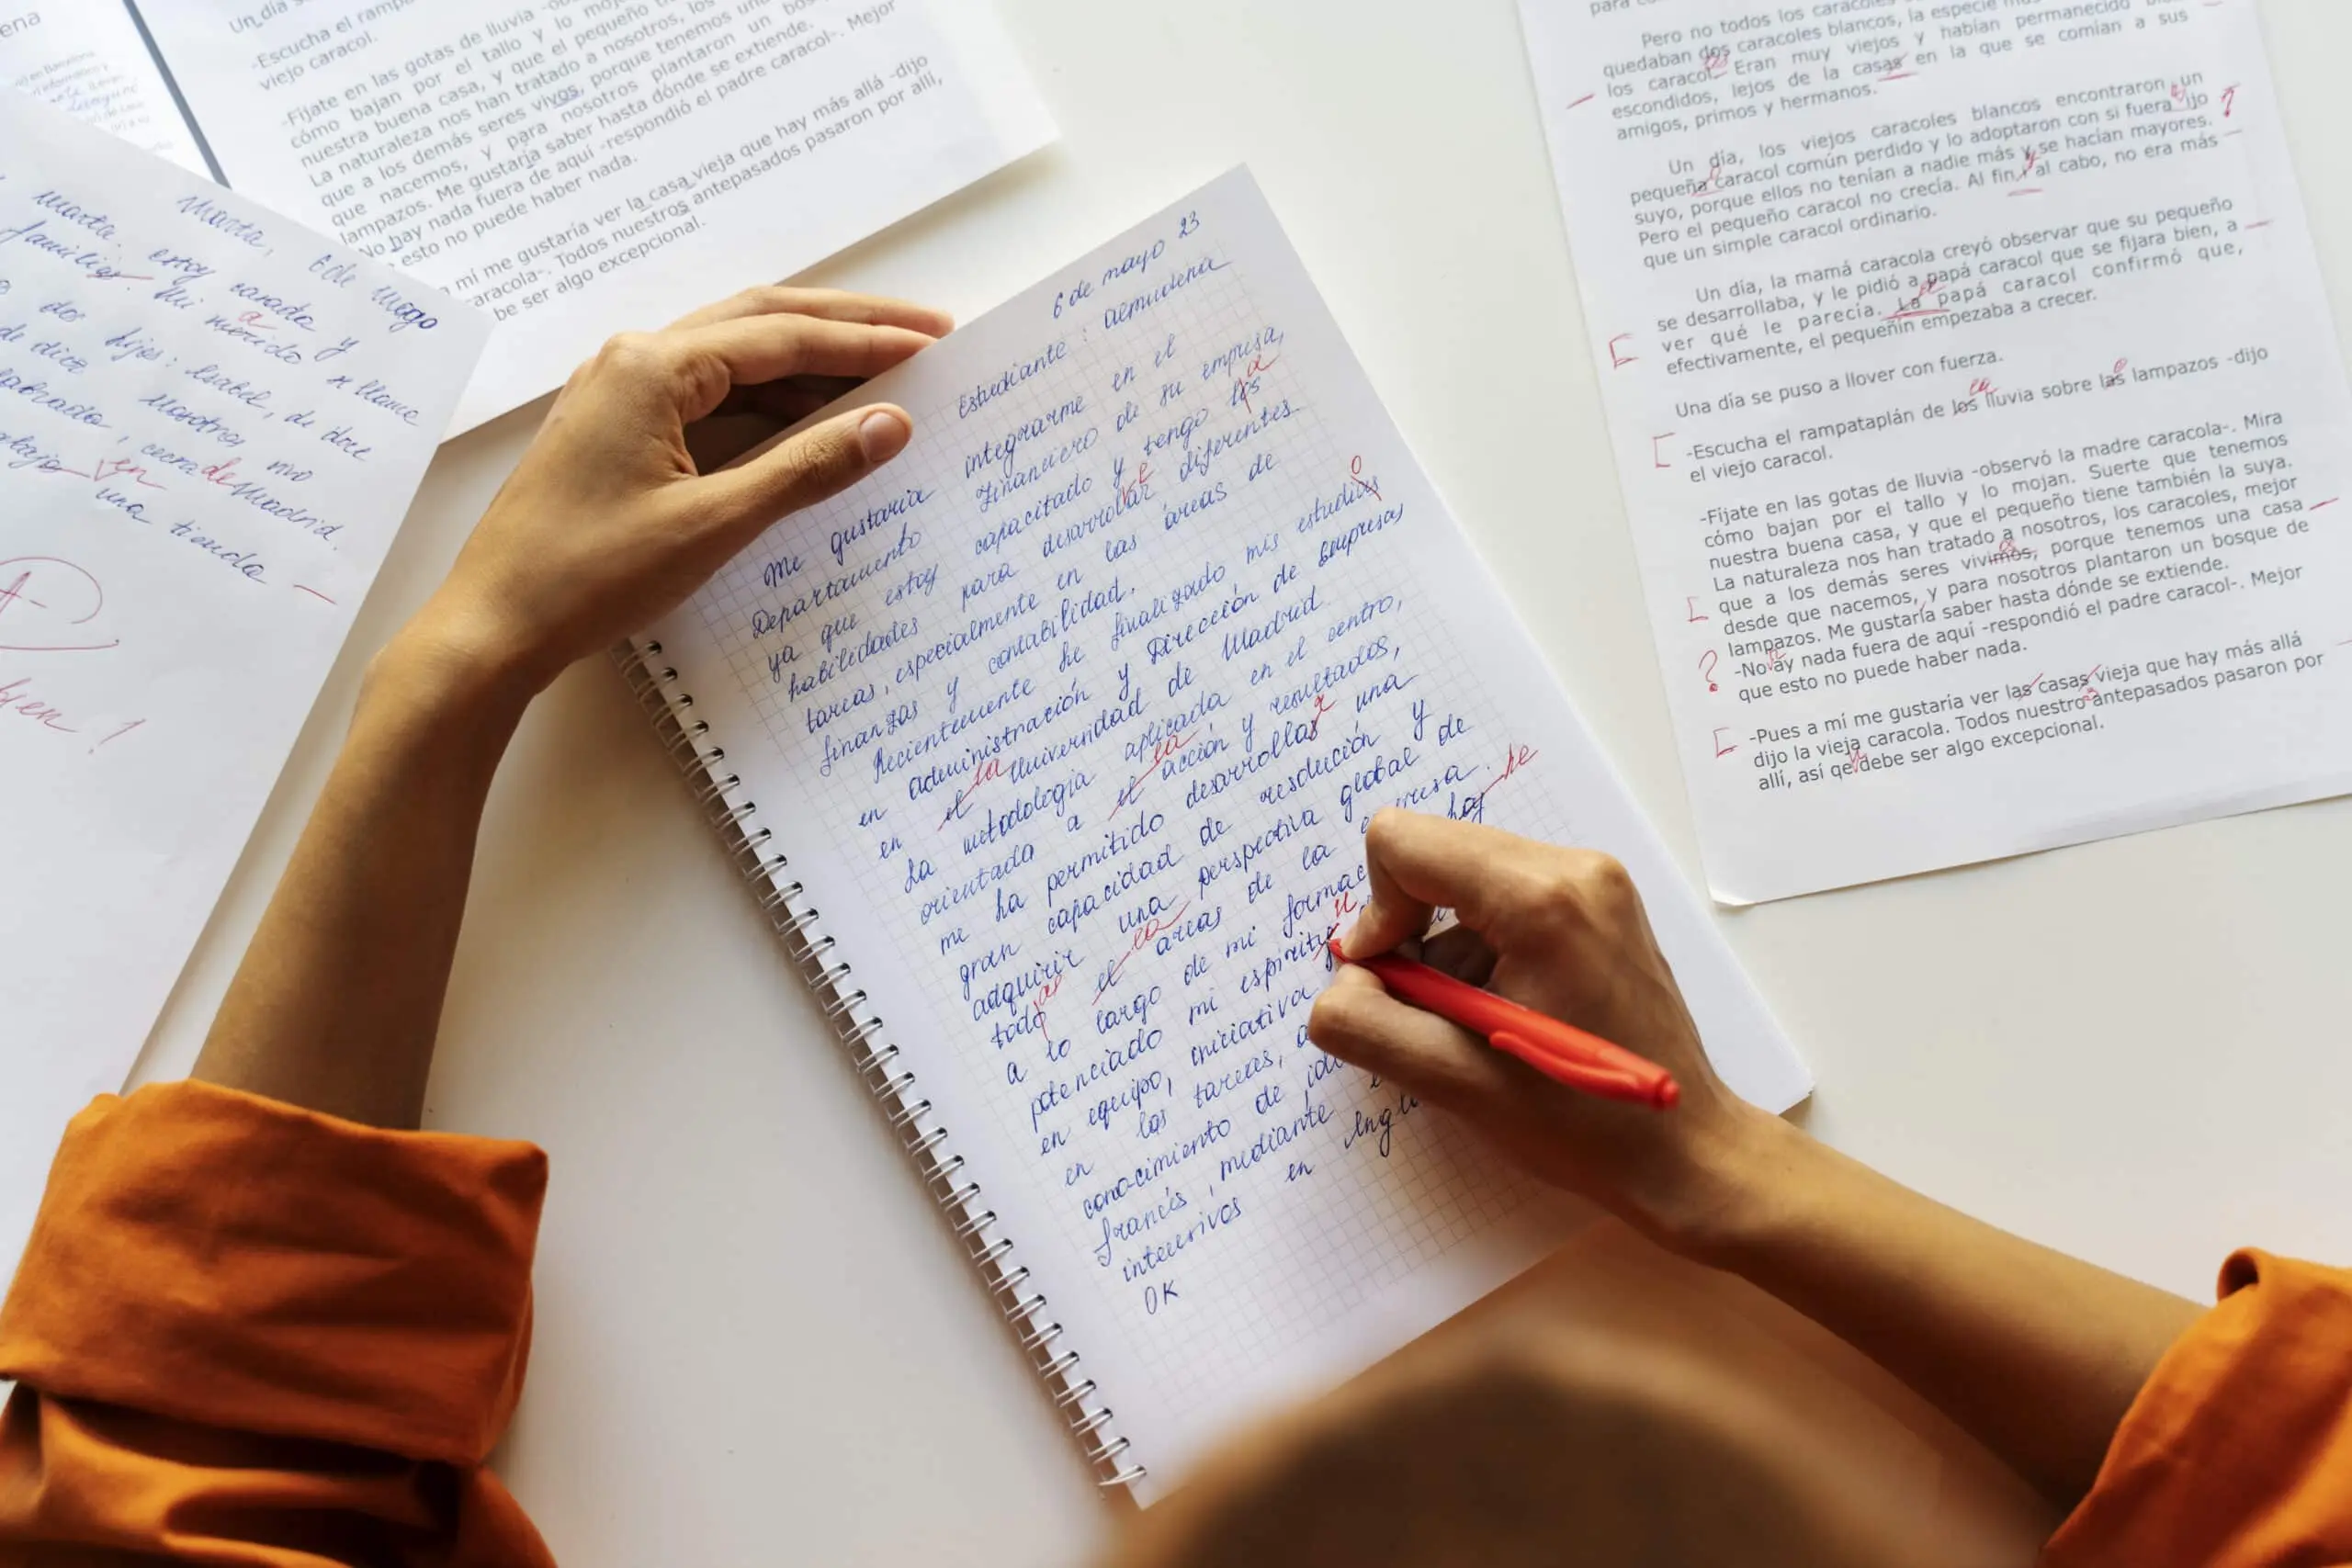 ena
Marta, 6 de mayo
Marta. estoy casada y
familia. Mi mar do se llama
a
dos hijos: Isabel, de doce
de diez Nosotros vivo
cerca de Madrid.
en una tienda
A-
bien!
Un día s
-Escucha el rampa
viejo caracol.
-Fíjate en las gotas de lluvia -ob
cómo bajan por el tallo y lo moj
nuestra buena casa, y que el pequeño
La naturaleza nos han tratado a nosotros, los
que a los demás seres vivos, porque tenemos una
que nacemos, y para nosotros plantaron un bos
lampazos. Me gustaría saber hasta dónde se extiende.
No hay nada fuera de aquí -respondió el padre caracol-. Mejor
esto no puede haber nada.
mí me gustaría ver la casa vieja que hay más allá -dijo
aracola-. Todos nuestros antepasados pasaron por allí,
be ser algo excepcional.
6 de mayo 23
Estudiante: Almudena
Me gustaria integrarme en el
Departamento Financiero de su empresa,
ya que estoy capacitado y tengo los
a
habilidades para desarrollar diferentes
e
tareas, especialmente en las áreas de
finanzas y contabilidad.
Recientemente he finalizado mis estudias
o
en administración y Dirección de Empresas
en el Universidad de Madrid.
la
La metodologia aplicada en el centro,
orientada a el acción y resultados,
la
me ha permitido desarrollas una
r
gran capacidad de resolución y
adquirir una perspectiva global de
todo el areas de la empresa.
as la
a lo largo de mi formac hoy
he
potenciado mi espiritu
u
en equipo, iniciativa
en las tareas, a
conocimiento de idi
francés, mediante
intensivos en Ingl
OK
para co
Pero no todos los caracoles
quedaban dos caracoles blancos, la especie más
los caracol. Eran muy viejos y habían permanecido
escondidos, lejos de la casas en la que se comían a sus
amigos, primos y hermanos.
Un día, los viejos caracoles blancos encontraron un
pequeña caracol común perdido y lo adoptaron con si fuera ijo
?
suyo, porque ellos no tenían a nadie más y se hacían mayores.
Pero el pequeño caracol no crecía. Al fin y al cabo, no era más
que un simple caracol ordinario.
Un día, la mamá caracola creyó observar que su pequeño
se desarrollaba, y le pidió a papá caracol que se fijara bien, a
ver qué le parecía. La papá caracol confirmó que,
efectivamente, el pequeñín empezaba a crecer.
Una día se puso a llover con fuerza.
-Escucha el rampataplán de los lluvia sobre las lampazos -dijo
la o
el viejo caracol.
-Fíjate en las gotas de lluvia -observó la madre caracola-. Mira
cómo bajan por el tallo y lo mojan. Suerte que tenemos
nuestra buena casa, y que el pequeño tiene también la suya.
La naturaleza nos han tratado a nosotros, los caracoles, mejor
que a los demás seres vivimos, porque tenemos una casa
desde que nacemos, y para nosotros plantaron un bosque de
lampazos. Me gustaría saber hasta dónde se extiende.
-No ay nada fuera de aquí -respondió el padre caracol-. Mejor
?
que esto no puede haber nada.
-Pues a mí me gustaría ver las casas vieja que hay más allá
dijo la vieja caracola. Todos nuestro antepasados pasaron por
allí, así qe debe ser algo excepcional.